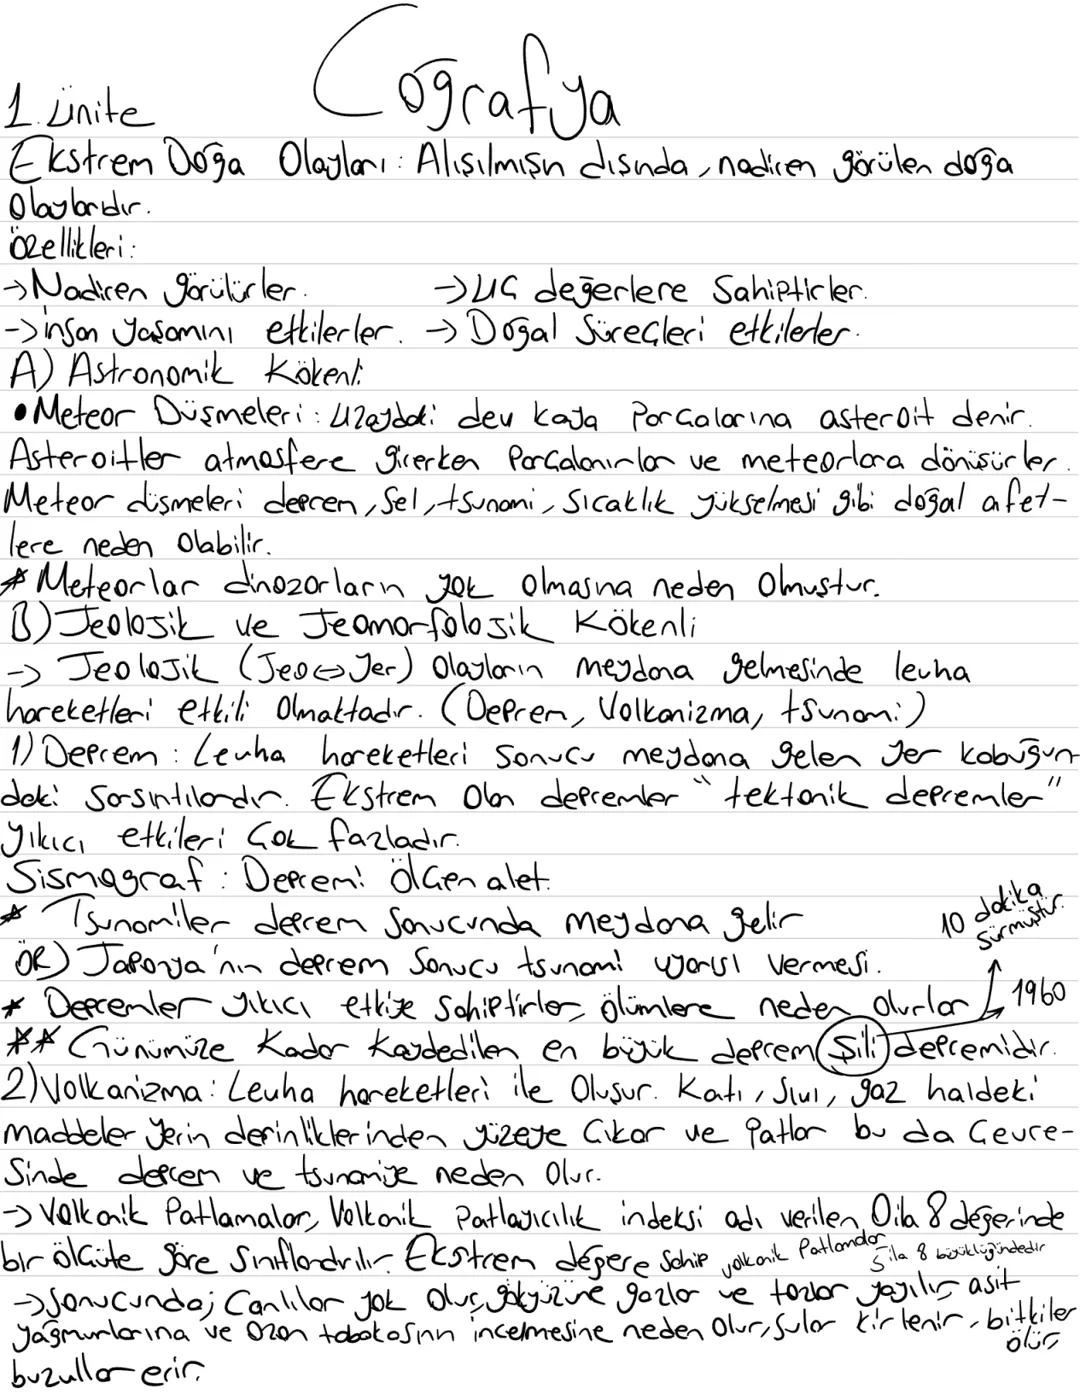 Coğrafya
1. Ünite
Ekstrem Doğa Olayları: Alışılmışın dışında, nadiren görülen doğa
olaylarıdır.
Özellikleri:
→ Nadiren görülürler. → Uç değerlere Sahiptirler.
→ insan yaşamını etkilerler. → Doğal Süreçleri etkilerler.
A) Astronomik Kökenli:
• Meteor Düşmeleri: Uzaydaki dev kaya Parçalarına asteroit denir.
Asteroitler atmosfere girerken Parçalanırlar ve meteorlara dönüşürler.
Meteor düşmeleri deprem, Sel, tsunami, Sıcaklık yükselmesi gibi doğal afet-
lere neden olabilir.
* Meteorlar dinozorların yok olmasına neden olmuştur.
B) Jeolojik ve Jeomorfolojik Kökenli
→ Jeolojik (Jeo↔Yer) Olayların meydana gelmesinde levha
hareketleri etkili olmaktadır. (Deprem, Volkanizma, tsunami)
1) Deprem: Levha hareketleri sonucu meydana gelen Yer kabuğun-
daki Sarsıntılardır. Ekstrem olan depremler "tektonik depremler"
yıkıcı etkileri çok fazladır.
Sismograf: Depremi ölçen alet.
* Tsunamiler deprem Sonucunda meydana gelir
10 dakika
sürmüştür.
ÖR) Japonya'nın deprem Sonucu tsunami uyarısı vermesi.
* Depremler yıkıcı etkiye Sahiptirler, ölümlere neden olurlar 1960
** Günümüze Kadar Kaydedilen en büyük deprem Şili depremidir.
2) Volkanizma: Levha hareketleri ile Oluşur. Katı, Sıvı, gaz haldeki
maddeler Yerin derinliklerinden yüzeye Çıkar ve Patlar bu da Çevre-
Sinde deprem ve tsunamiye neden olur.
→ Volkanik Patlamalar, Volkanik Patlayıcılık indeksi adı verilen 0 ila 8 değerinde
bir ölçüte göre Sınıflandırılır. Ekstrem değere Sahip volkanik Patlamalar 5 ila 8 büyüklüğündedir
→ Sonucunda; Canlılar yok olur, gökyüzüne gazlar ve tozlar yayılır, asit
yağmurlarına ve ozon tabakasının incelmesine neden olur, Sular kirlenir, bitkiler
ölür,
buzullar erir.